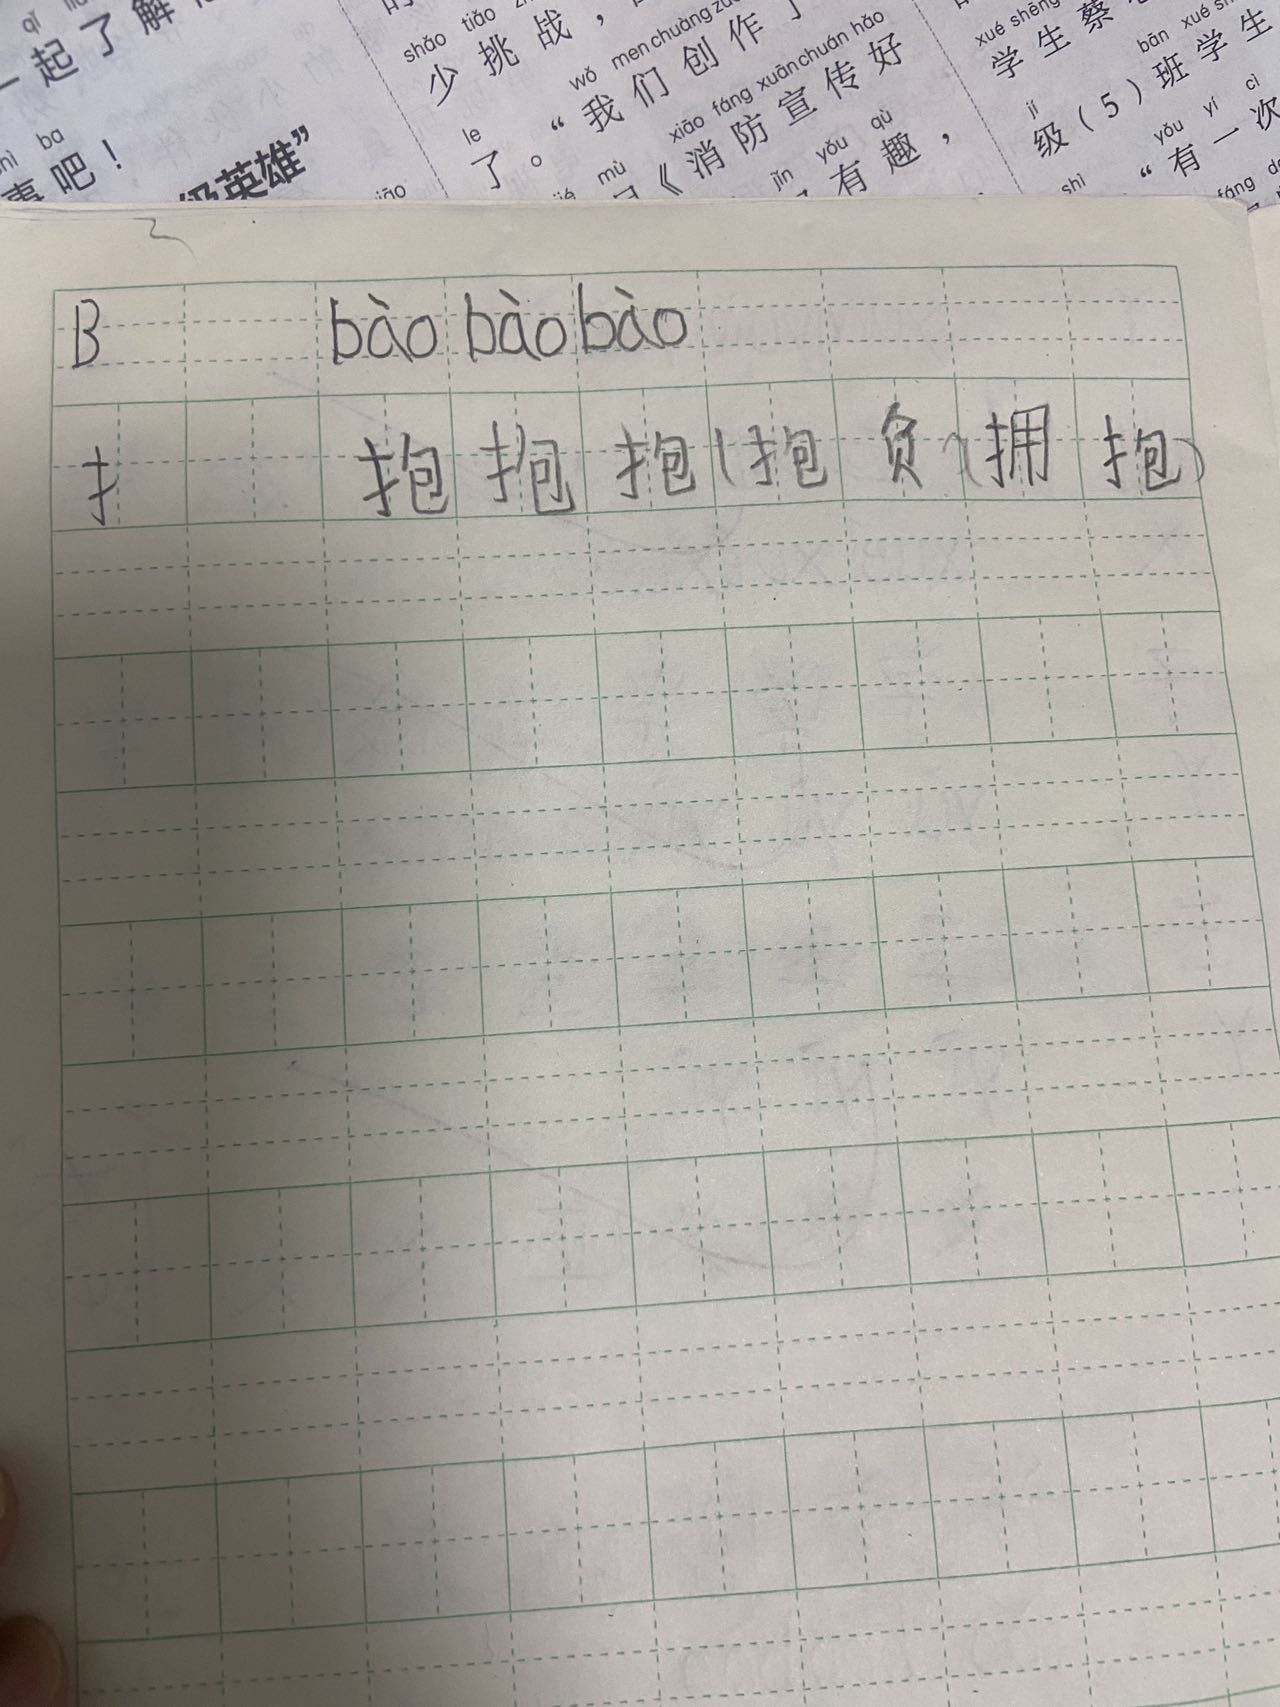 qǐ
一起了解
ba
事吧！
级英雄”
shǎo tiǎo
少挑战，
wǒ men chuàng zuò
le
了。“我们创作了
xiāo fáng xuān chuán hǎo
mù
《消防宣传好
jǐn yǒu qù
有趣，
xué shēng
学生蔡
bān xué
jí
级（5）班学生
yǒu yí cì
shì
“有一次
fáng
B bào bào bào
扌 抱 抱 抱（抱 负）（拥 抱）